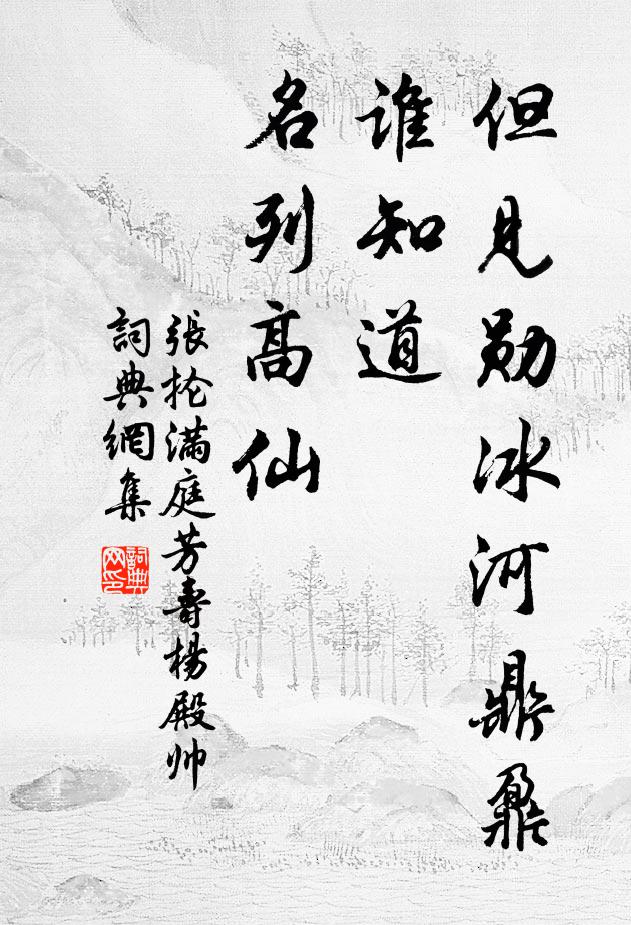 但見勋冰河鼎鼐
誰知道
名列高仙
張抡滿庭芳壽楊殿帅
詞典網集
詞典
网印